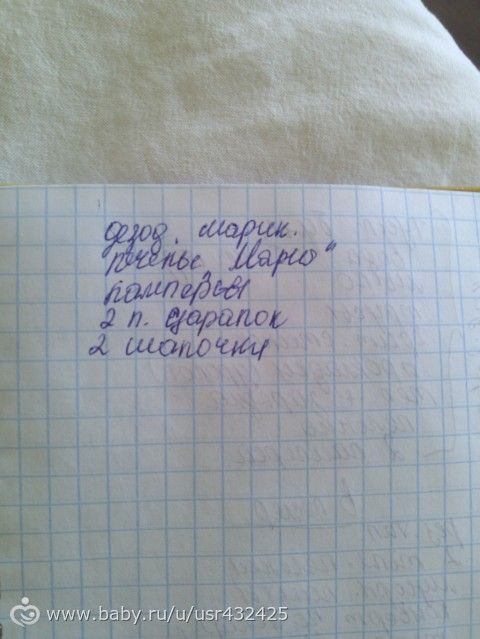 дезод. марик.
печенье „Марго"
памперсы
2 п. царапок
2 шапочки
www.baby.ru/u/usr432425